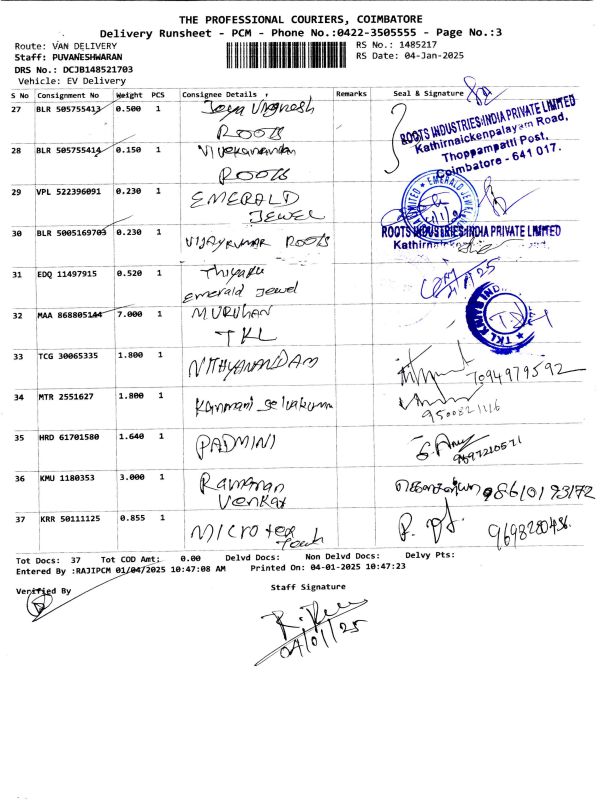 THE PROFESSIONAL COURIERS, COIMBATORE
Delivery Runsheet - PCM - Phone No.:0422-3505555 - Page No.:3
Route: VAN DELIVERY RS No.: 1485217
Staff: PUVANESHWARAN RS Date: 04-Jan-2025
DRS No.: DCJB148521703
Vehicle: EV Delivery
S No Consignment No Weight PCS Consignee Details Remarks Seal & Signature
27 BLR 505755413 0.500 1 Jaya Vignesh
ROOTS
ROOTS INDUSTRIES INDIA PRIVATE LIMITED
Kathirnaickenpalayam Road,
Thoppampatti Post,
Coimbatore - 641 017.
28 BLR 505755414 0.150 1 Vivekanandan
ROOTS
29 VPL 522396091 0.230 1 EMERALD
JEWEL
30 BLR 5005169703 0.230 1 VIJAYKUMAR ROOTS
ROOTS INDUSTRIES INDIA PRIVATE LIMITED
31 EDQ 11497915 0.520 1 Thiyagu
Emerald Jewel
32 MAA 868805144 7.000 1 MURUGAN
TKL
33 TCG 30065335 1.800 1 NITHYANANDAM
7094979592
34 MTR 2551627 1.800 1 Kanmani Selvakumar
9500821116
35 HRD 61701580 1.640 1 PADMINI
9697210571
36 KMU 1180353 3.000 1 Ramanan
Venkat
98610193172
37 KRR 50111125 0.855 1 MICROTEX
9698280436
Tot Docs: 37 Tot COD Amt: 0.00 Delvd Docs: Non Delvd Docs: Delvy Pts:
Entered By :RAJIPCM 01/04/2025 10:47:08 AM Printed On: 04-01-2025 10:47:23
Verified By Staff Signature
04/01/25